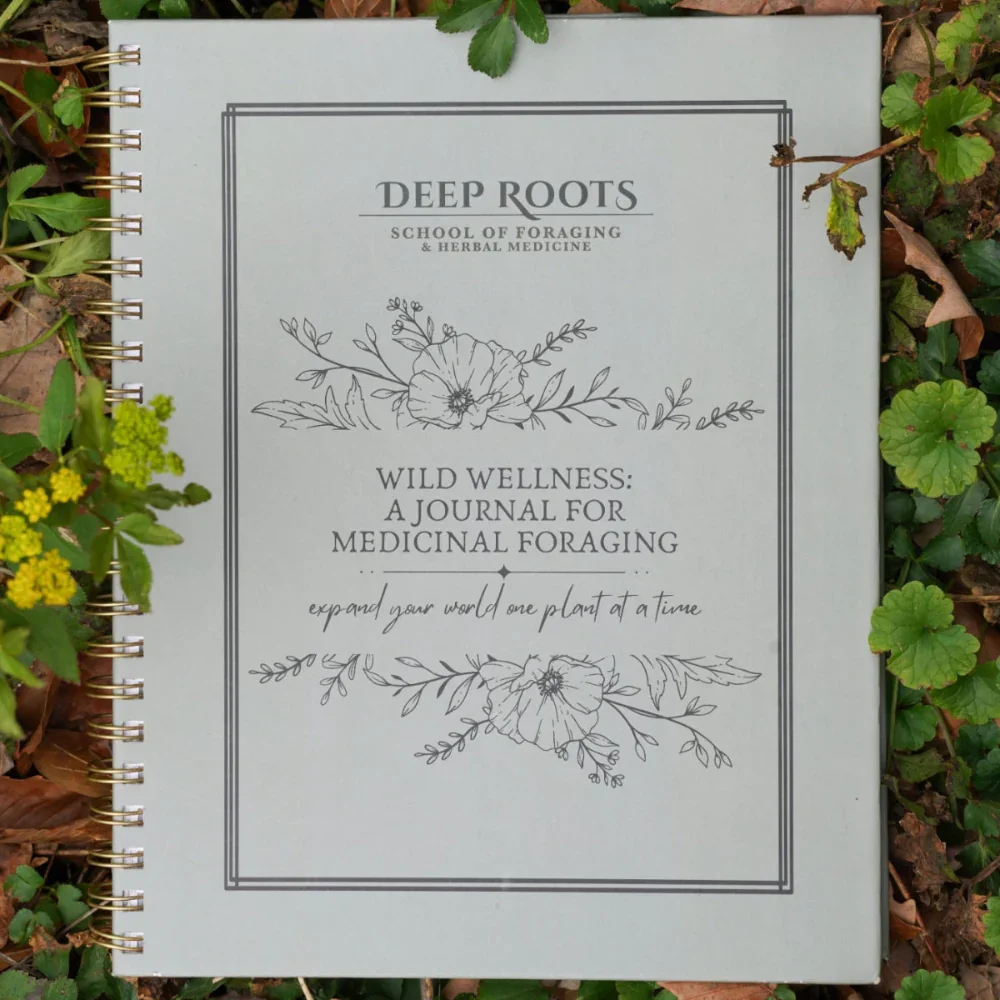 DEEP ROOTS
SCHOOL OF FORAGING
& HERBAL MEDICINE
WILD WELLNESS:
A JOURNAL FOR
MEDICINAL FORAGING
expand your world one plant at a time